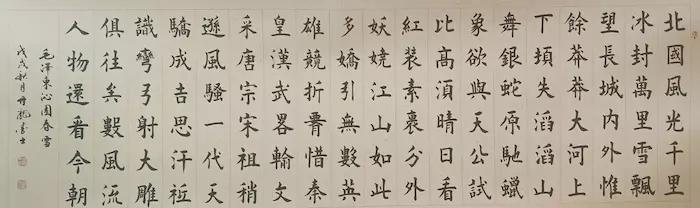 北國風光千里
冰封萬里雪飄
望長城內外惟
餘莽莽大河上
下頓失滔滔山
舞銀蛇原馳蠟
象欲與天公試
比高湏晴日看
紅裝素裹分外
妖嬈江山如此
多嬌引無數英
雄競折腰惜秦
皇漢武畧輸文
采唐宗宋祖稍
遜風騷一代天
驕成吉思汗祗
識彎弓射大雕
俱往矣數風流
人物還看今朝
毛澤東沁園春雪
戊戌秋月書